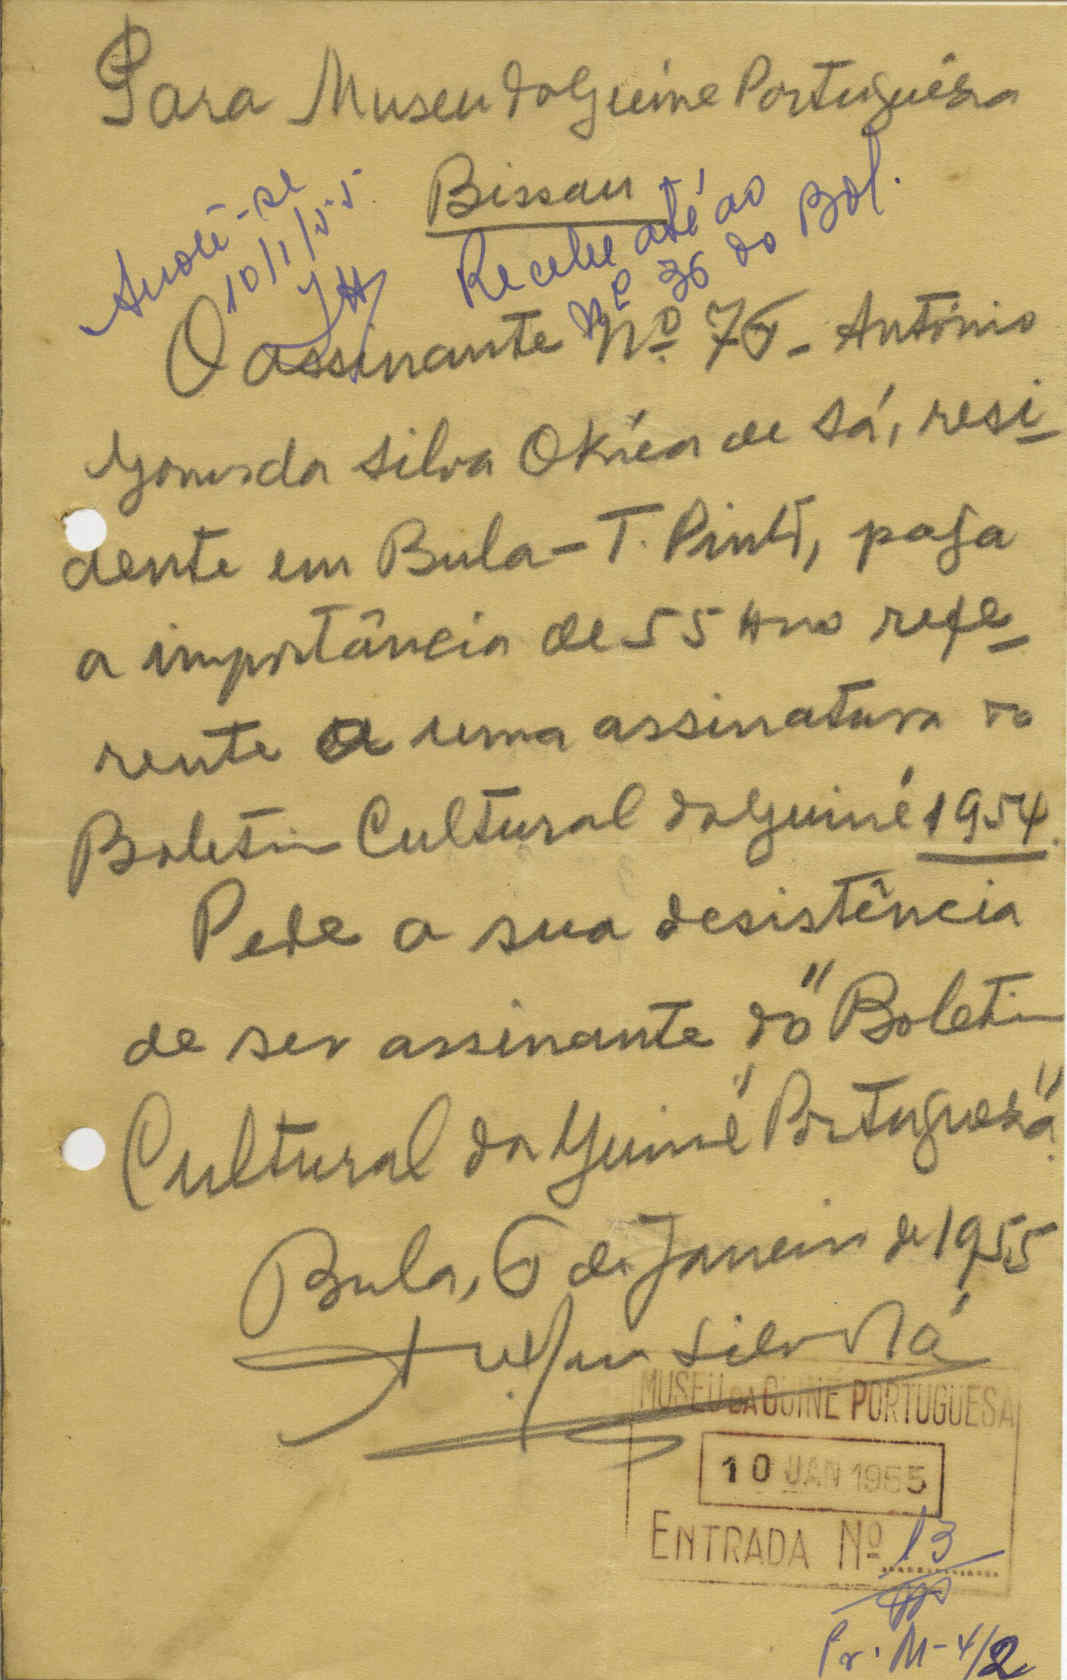 Para Museu da Guine Portuguêsa
Bissau
Anote-se
10/1/55
Recebe até ao
Nº 36 do Bol.
O assinante Nº. 76 - António
Gomes da Silva de Sá, resi-
dente em Bula - T. Pinto, paga
a importância de 55 refe-
rente a uma assinatura do
Boletin Cultural da Guiné 1954.
Pede a sua desistência
de ser assinante do "Boletin
Cultural da Guiné Portuguesa".
Bula, 6 de Janeiro de 1955
Silva Sá
MUSEU DA GUINÉ PORTUGUESA
10 JAN 1955
ENTRADA Nº 13
Pr. M-4/2